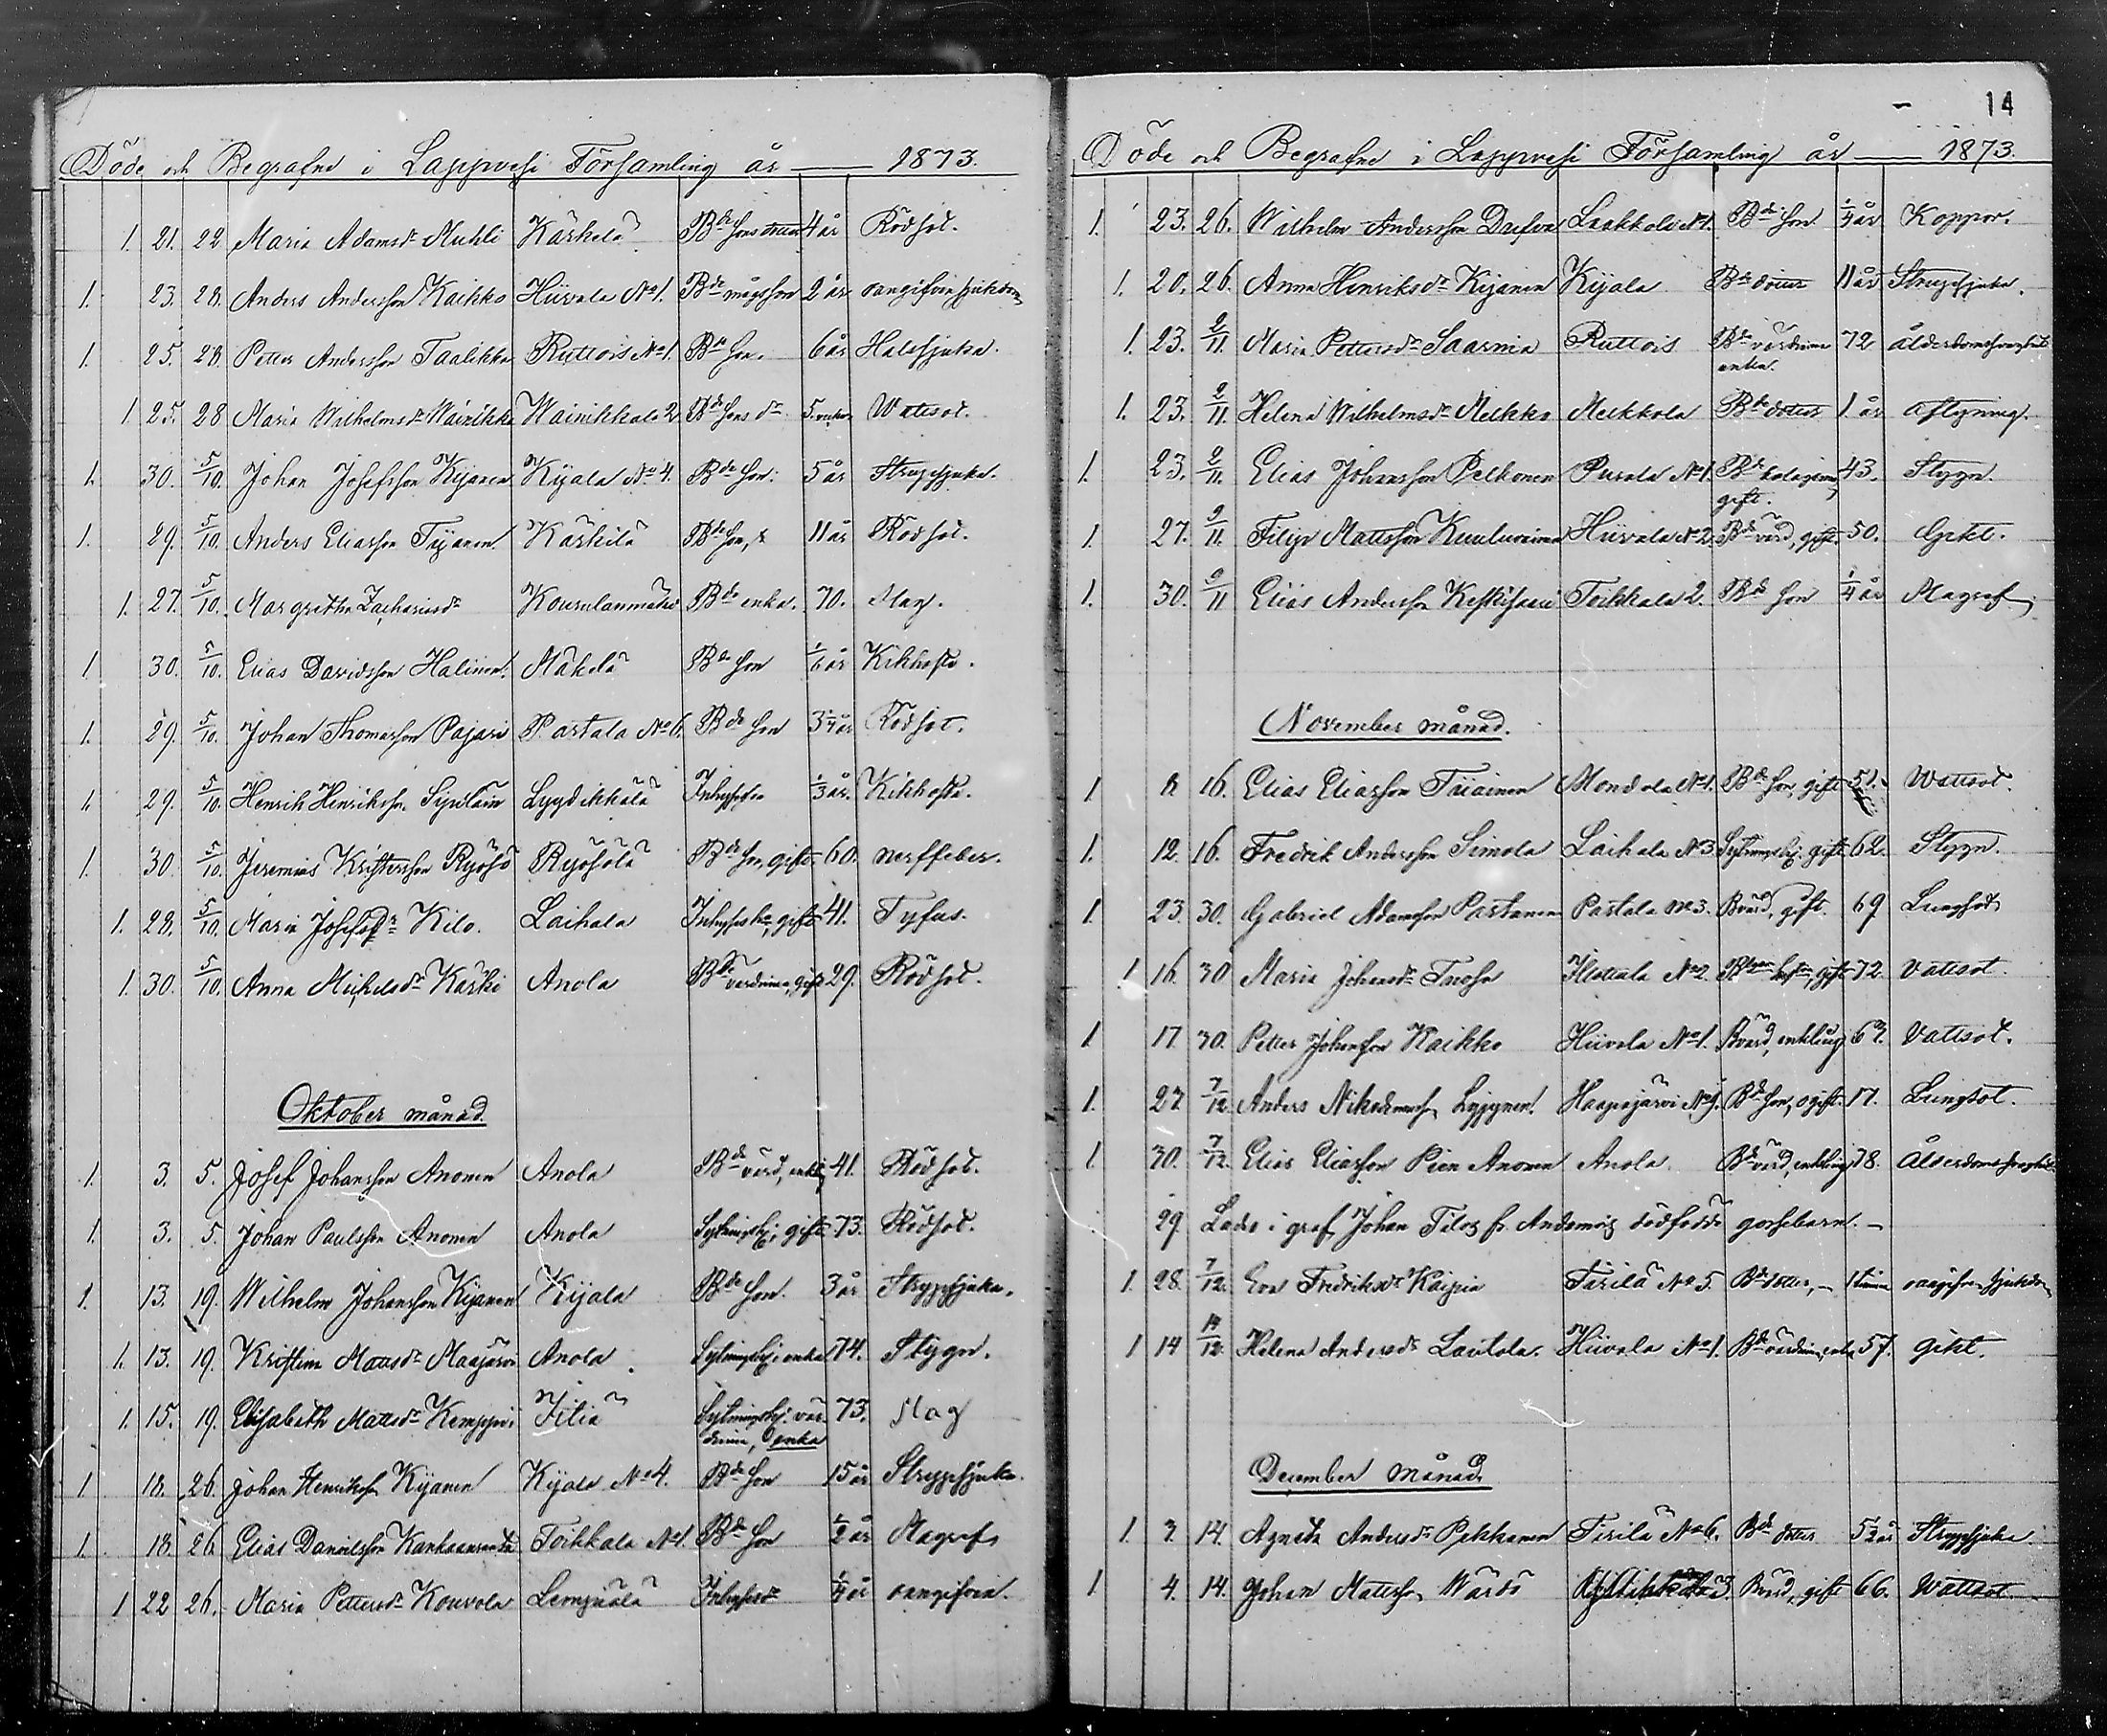 Döde och Begrafne i Lappvesi Församling år 1873.
1. 21. 22 Maria Adamsdr Muhli Kärkelä Bde sons dotter 4 år Rödsot.
1. 23. 28. Anders Andersson Kaikko Hiivala No 1. Bde mågs son 2 år oangifven sjukdom
1. 25. 28. Petter Andersson Taalikka Ruttois No 1. Bde son. 6 år Halssjuka.
1. 25. 28 Maria Wilhelmsdr Wainikka Wainikkala 2 Bde sons dr 5. veckor Wattsot.
1. 30. 5/10. Johan Josefsson Kijanen Kijala No 4. Bde son. 5 år Strypsjuka.
1. 29. 5/10. Anders Eliasson Tijanen. Kärkelä Bde son, 11 år Rödsot.
1. 27. 5/10. Margretha Zachariasdr Bde enka. 70. Slag.
1 30. 5/10. Elias Davidsson Halinen. Mäkelä Bde son 1/6 år Kikhosta.
1. 29. 5/10. Johan Thomasson Pajari Partala No 6. Bde son 3 1/4 år Rödsot.
1. 29. 5/10. Henrik Henriksson Sipiläin Lyydikkälä Inhyses 1/3 år. Kikhosta.
1. 30. 5/10. Jeremias Kristersson Ryösö Ryösölä Bde son, gift. 60. nerffeber.
1. 28. 5/10. Maria Josefsdr Kilo. Laihala Inhyses, gift 41. Tyfus.
1. 30. 5/10. Anna Michelsdr Kärki Anola Bde värdinna, gift 29. Rödsot.
Oktober månad.
1. 3. 5. Josef Johansson Anonen Anola Bde värd, enkl. 41. Rödsot.
1. 3. 5. Johan Paulsson Anonen Anola Sytningshj. gift 73. Rödsot.
1. 13. 19. Wilhelm Johansson Kijanen Kijala Bde son. 3 år Strypsjuka.
1. 13. 19. Kristin Mattsdr Maajärvi Anola Sytningshj. enka 74. Stygn.
1. 15. 19. Elisabeth Mattsdr Kemppi Iitiä Sytningshj. värdinna, enka 73. Slag
1 18. 26. Johan Henriksson Kijanen Kijala No 4. Bde son 15 år Strypsjuka.
1. 18. 26 Elias Danielsson Toikkala No 1. Bde son 1/2 år Magref
1 22 26. Maria Pettersdr Kouvola Lempiälä Inhysesdr 1/4 år oangifven.
14
Döde och Begrafne i Lappvesi Församling år 1873.
1. 23. 26. Wilhelm Andersson Drefva Laakkola No 1. Bde son 1/4 år Koppor.
1. 20. 26. Anna Henriksdr Kijanen Kijala Bde dotter 11 år Strypsjuka.
1. 23. 2/11. Maria Pettersdr Saarnia Ruttois Bde värdinna enka. 72 ålderdomssvaghet
1. 23. 2/11. Helena Wilhelmsdr Meikko Meikkola Bde dotter 1 år Aftyning.
1. 23. 2/11. Elias Johansson Pelkonen Purala No 1. Bde gift. 43. Stygn.
1. 27. 9/11. Filip Mattsson Kuuluvainen Hiivala No 2. Bde värd, gift. 50. Gikt.
1. 30. 9/11 Elias Andersson Keskisaari Toikkala 2. Bde son 1/4 år Magref
November månad.
1 8 16. Elias Eliasson Tiiainen Mondola No 1. Bde son, gift 51. Wattsot.
1. 12. 16. Fredrik Andersson Simola Laihala No 3 Sytningshj. gift. 62. Stygn.
1 23. 30. Gabriel Adamsson Partanen Partala No 3. Bvärd, gift. 69 Lungsot
1 16. 30 Maria Johansdr Tuohi No 2. gift 72 Vattsot.
1 17. 30. Petter Johansson Kaikko Hiivala No 1. Bvärd, enkling 67. Vattsot.
1. 27 7/12. Anders Nikodemuss. Lyijynen. Haapajärvi No 1. Bde son, ogift. 17. Lungsot.
1. 30. 7/12. Elias Eliasson Pien Anonen Anola. Bde värd, enkling 78. Ålderdomssvaghet
29. Lades i graf Johan Filos fr. dödfödda gossebarn. –
1. 28. 7/12. Eva Fredriksdr Kaipia Tirilä No 5. Bde dotter, – 1 timme oangifven sjukdom
1 14 14/12. Helena Andersdr Lavtola. Hiivala No 1. Bde värdinna, enka 57. Gikt.
December månad.
1. 3. 14. Agneta Andersdr Pekkanen Tirilä No 6. Bde dotter 5 1/2 år Strypsjuka
1. 4. 14. Johan Mattsson Wärdi 3. Bvärd, gift 66. Wattsot.